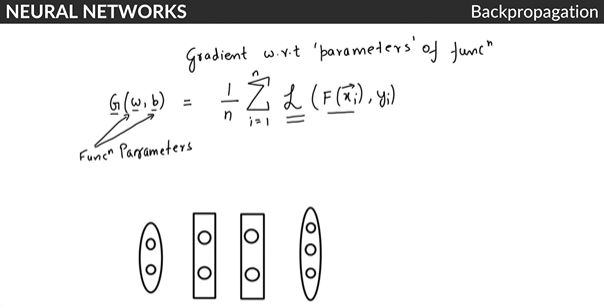 NEURAL NETWORKS
Backpropagation
Gradient w.r.t 'parameters' of funcⁿ
G(w, b) = 1/n ∑ i=1 n L (F(x⃗i), yi)
Funcⁿ Parameters